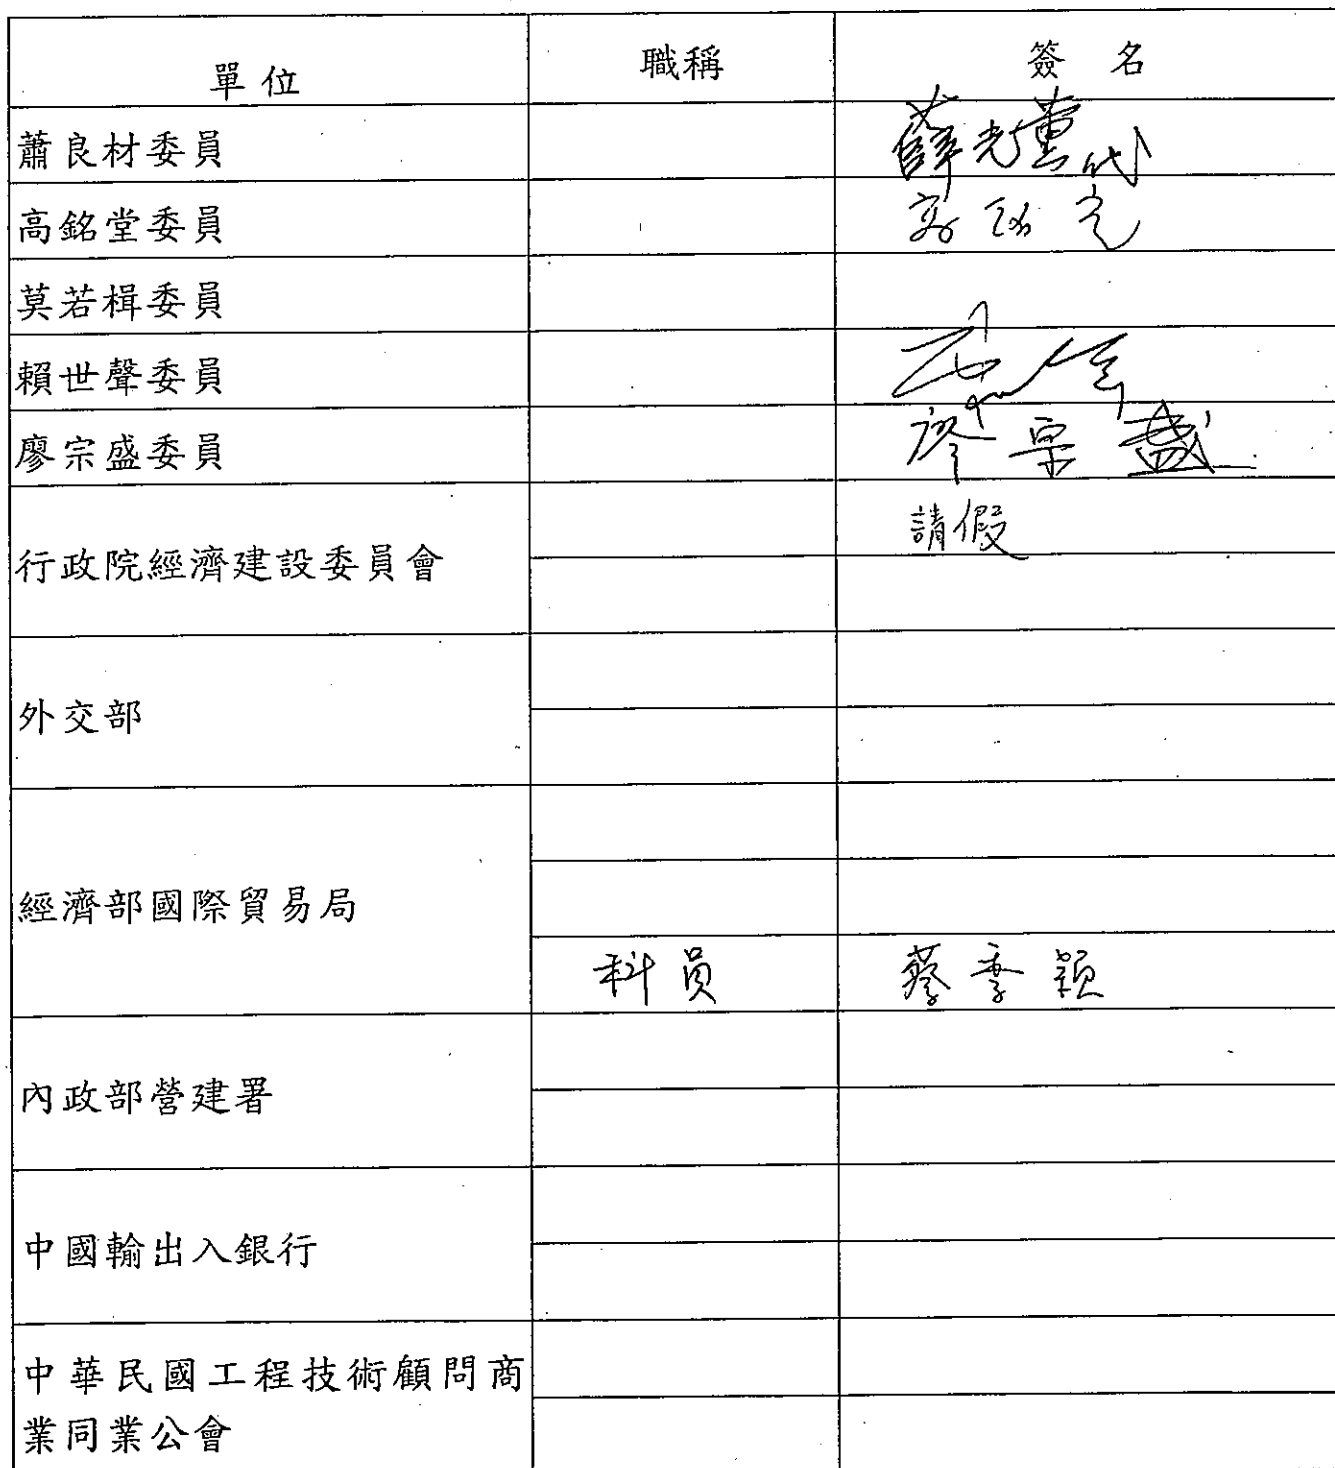 單位 職稱 簽名
蕭良材委員 薛光黃代
高銘堂委員
莫若楫委員
賴世聲委員
廖宗盛委員 廖宗盛
請假
行政院經濟建設委員會
外交部
經濟部國際貿易局
科員 蔡季穎
內政部營建署
中國輸出入銀行
中華民國工程技術顧問商
業同業公會